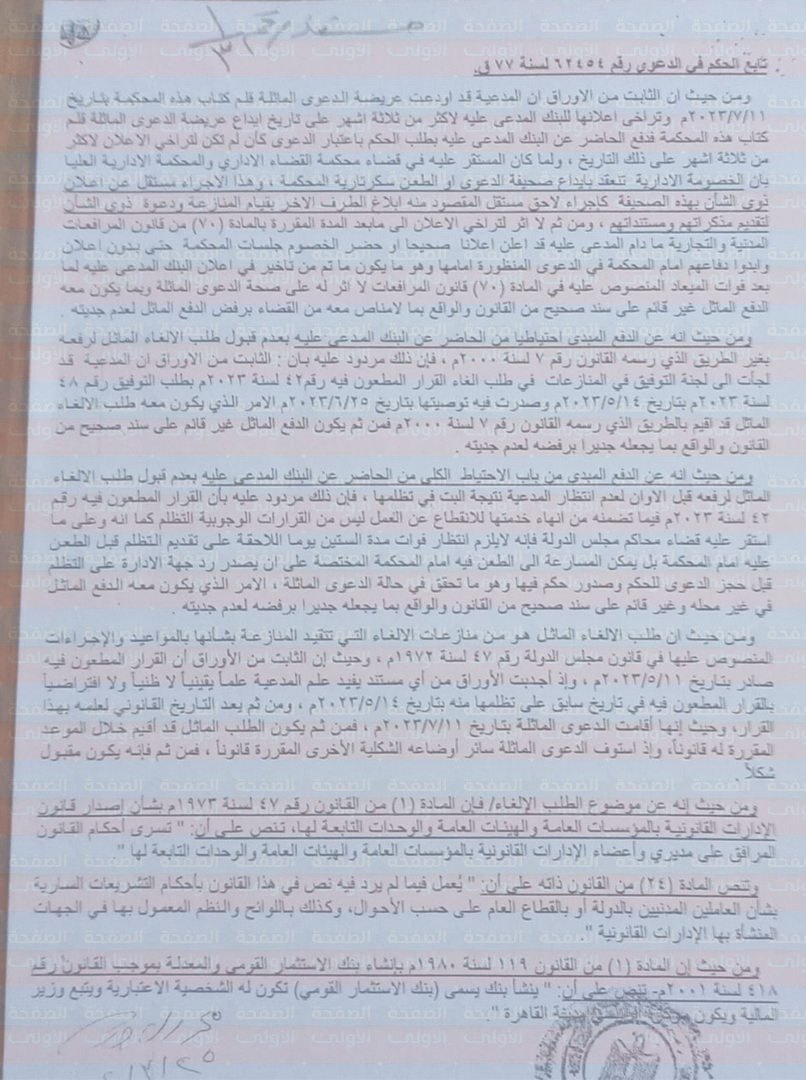 مستند رقم ١
٣
تابع الحكم في الدعوى رقم ٦٢٤٥٤ لسنة ٧٧ ق.
ومن حيث ان الثابت من الاوراق ان المدعية قد اودعت عريضة الدعوى الماثلة قلم كتاب هذه المحكمة بتاريخ
٢٠٢٣/٧/١١م وتراخى اعلانها للبنك المدعى عليه لاكثر من ثلاثة اشهر على تاريخ ايداع عريضة الدعوى الماثلة قلم
كتاب هذه المحكمة فدفع الحاضر عن البنك المدعى عليه بطلب الحكم باعتبار الدعوى كأن لم تكن لتراخي الاعلان لاكثر
من ثلاثة اشهر على ذلك التاريخ ، ولما كان المستقر عليه في قضاء محكمة القضاء الاداري والمحكمة الادارية العليا
بان الخصومة الادارية تنعقد بايداع صحيفة الدعوى او الطعن سكرتارية المحكمة ، وهذا الاجراء مستقل عن اعلان
ذوي الشأن بهذه الصحيفة كاجراء لاحق مستقل المقصود منه ابلاغ الطرف الاخر بقيام المنازعة ودعوة ذوي الشأن
لتقديم مذكراتهم ومستنداتهم ، ومن ثم لا اثر لتراخي الاعلان الى مابعد المدة المقررة بالمادة (٧٠) من قانون المرافعات
المدنية والتجارية ما دام المدعى عليه قد اعلن اعلانا صحيحا او حضر الخصوم جلسات المحكمة حتى بدون اعلان
وابدوا دفاعهم امام المحكمة في الدعوى المنظورة امامها وهو ما يكون ما تم من تاخير في اعلان البنك المدعى عليه لما
بعد فوات الميعاد المنصوص عليه في المادة (٧٠) قانون المرافعات لا اثر له على صحة الدعوى الماثلة وبما يكون معه
الدفع الماثل غير قائم على سند صحيح من القانون والواقع بما لامناص معه من القضاء برفض الدفع الماثل لعدم جديته .
ومن حيث انه عن الدفع المبدى احتياطيا من الحاضر عن البنك المدعى عليه بعدم قبول طلب الالغاء الماثل لرفعه
بغير الطريق الذي رسمه القانون رقم ٧ لسنة ٢٠٠٠م ، فإن ذلك مردود عليه بان : الثابت من الاوراق ان المدعية قد
لجأت الى لجنة التوفيق في المنازعات في طلب الغاء القرار المطعون فيه رقم٤٢ لسنة ٢٠٢٣م بطلب التوفيق رقم ٤٨
لسنة ٢٠٢٣م بتاريخ ٢٠٢٣/٥/١٤م وصدرت فيه توصيتها بتاريخ ٢٠٢٣/٦/٢٥م الامر الذي يكون معه طلب الالغاء
الماثل قد اقيم بالطريق الذي رسمه القانون رقم ٧ لسنة ٢٠٠٠م فمن ثم يكون الدفع الماثل غير قائم على سند صحيح من
القانون والواقع بما يجعله جديرا برفضه لعدم جديته .
ومن حيث انه عن الدفع المبدى من باب الاحتياط الكلي من الحاضر عن البنك المدعى عليه بعدم قبول طلب الالغاء
الماثل لرفعه قبل الاوان لعدم انتظار المدعية نتيجة البت في تظلمها ، فإن ذلك مردود عليه بأن القرار المطعون فيه رقم
٤٢ لسنة ٢٠٢٣م فيما تضمنه من انهاء خدمتها للانقطاع عن العمل ليس من القرارات الوجوبية التظلم كما انه وعلى ما
استقر عليه قضاء محاكم مجلس الدولة فإنه لايلزم انتظار فوات مدة الستين يوما اللاحقة على تقديم التظلم قبل الطعن
عليه امام المحكمة بل يمكن المسارعة الى الطعن فيه امام المحكمة المختصة على ان يصدر رد جهة الادارة على التظلم
قبل حجز الدعوى للحكم وصدور حكم فيها وهو ما تحقق في حالة الدعوى الماثلة ، الامر الذي يكون معه الدفع الماثل
في غير محله وغير قائم على سند صحيح من القانون والواقع بما يجعله جديرا برفضه لعدم جديته .
ومن حيث ان طلب الالغاء الماثل هو من منازعات الالغاء التي تتقيد المنازعة بشأنها بالمواعيد والإجراءات
المنصوص عليها في قانون مجلس الدولة رقم ٤٧ لسنة ١٩٧٢م ، وحيث إن الثابت من الأوراق أن القرار المطعون فيه
صادر بتاريخ ٢٠٢٣/٥/١١م ، وإذ أجدبت الأوراق من أي مستند يفيد علم المدعية علماً يقينياً لا ظنياً ولا افتراضياً
بالقرار المطعون فيه في تاريخ سابق على تظلمها منه بتاريخ ٢٠٢٣/٥/١٤م ، ومن ثم يعد التاريخ القانوني لعلمه بهذا
القرار، وحيث إنها أقامت الدعوى الماثلة بتاريخ ٢٠٢٣/٧/١١م ، فمن ثم يكون الطلب الماثل قد أقيم خلال الموعد
المقررة له قانوناً، وإذ استوف الدعوى الماثلة سائر أوضاعه الشكلية الأخرى المقررة قانوناً ، فمن ثم فإنه يكون مقبول
شكلاً .
ومن حيث إنه عن موضوع الطلب الإلغاء/ فإن المادة (١) من القانون رقم ٤٧ لسنة ١٩٧٣م بشأن إصدار قانون
الإدارات القانونية بالمؤسسات العامة والهيئات العامة والوحدات التابعة لها، تنص على أن: " تسرى أحكام القانون
المرافق على مديري وأعضاء الإدارات القانونية بالمؤسسات العامة والهيئات العامة والوحدات التابعة لها "
وتنص المادة (٢٤) من القانون ذاته على أن: " يُعمل فيما لم يرد فيه نص في هذا القانون بأحكام التشريعات السارية
بشأن العاملين المدنيين بالدولة أو بالقطاع العام على حسب الأحوال، وكذلك باللوائح والنظم المعمول بها في الجهات
المنشأة بها الإدارات القانونية ".
ومن حيث إن المادة (١) من القانون ١١٩ لسنة ١٩٨٠م بإنشاء بنك الاستثمار القومي والمعدلة بموجب القانون رقم
٤١٨ لسنة ٢٠٠١م- تنص على أن: " ينشأ بنك يسمى (بنك الاستثمار القومي) تكون له الشخصية الاعتبارية ويتبع وزير
المالية ويكون مدينة القاهرة ".
الصفحة الأولى